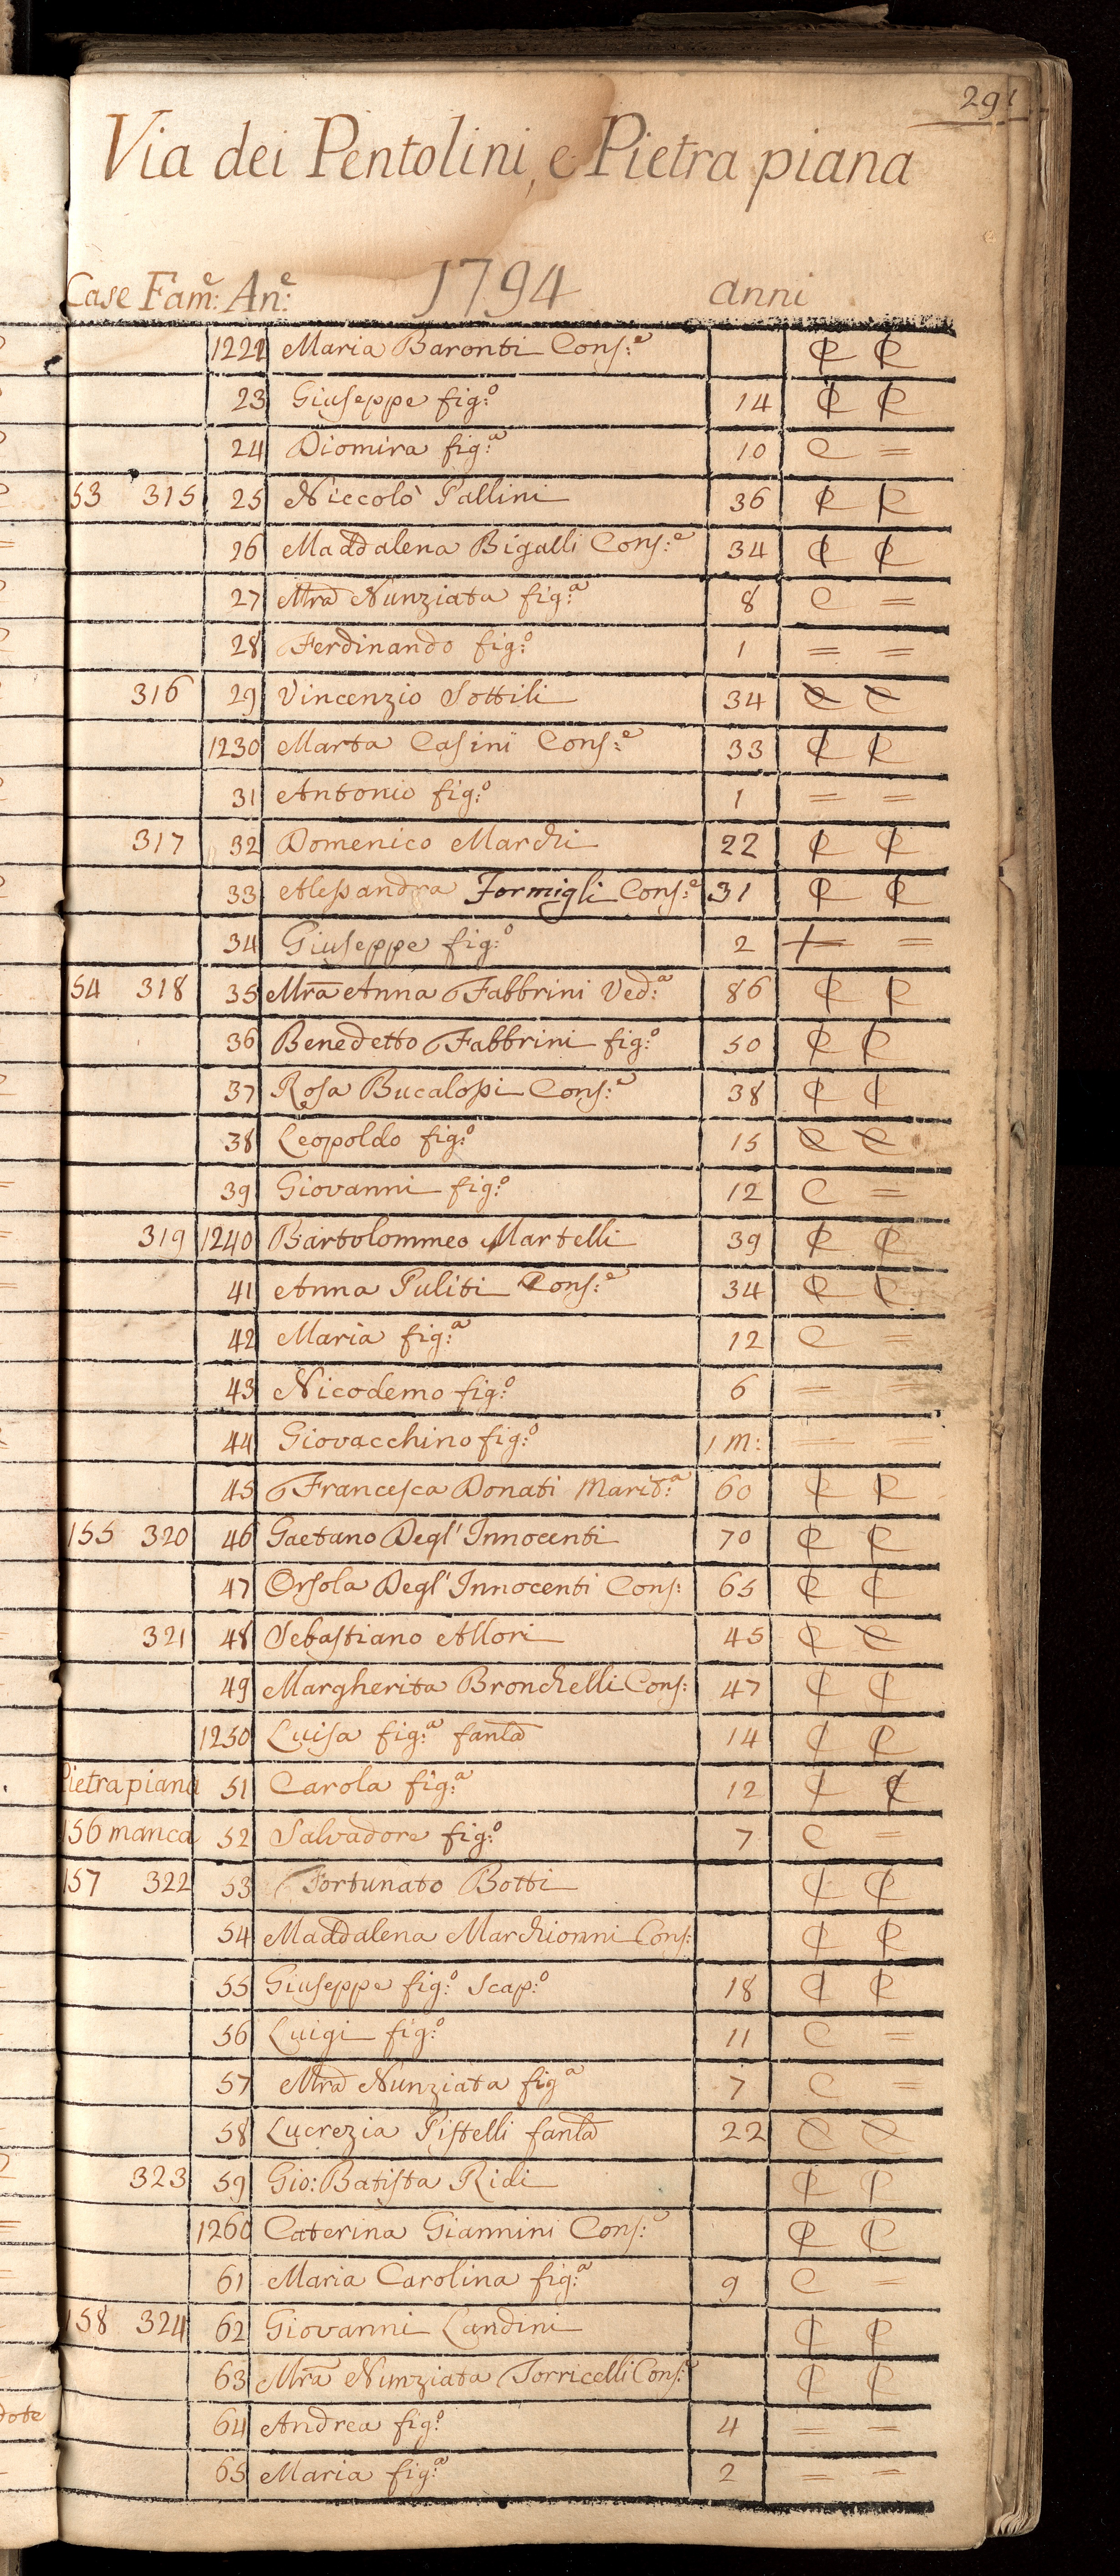 291
Via dei Pentolini, e Pietra piana
Case Fam:e An:e 1794 anni
1222 Maria Baronti Cons:e C R
23 Giuseppe fig:o 14 C R
24 Diomira fig:a 10 C =
53 315 25 Niccolò Pallini 36 C R
26 Maddalena Bigalli Cons:e 34 C C
27 Mra Nunziata fig:a 8 C =
28 Ferdinando fig:o 1 = =
316 29 Vincenzio Sottili 34 C C
1230 Marta Casini Cons:e 33 C R
31 Antonio fig:o 1 = =
317 32 Domenico Marchi 22 C C
33 Alessandra Formigli Cons:e 31 C R
34 Giuseppe fig:o 2 = =
54 318 35 Mra Anna Fabbrini Ved:a 86 C R
36 Benedetto Fabbrini fig:o 50 C C
37 Rosa Bucalossi Cons:e 38 C C
38 Leopoldo fig:o 15 C C
39 Giovanni fig:o 12 C =
319 1240 Bartolommeo Martelli 39 C C
41 Anna Puliti Cons:e 34 C C
42 Maria fig:a 12 C =
43 Nicodemo fig:o 6 = =
44 Giovacchino fig:o 1 m: = =
45 Francesca Donati Marit:a 60 C R
155 320 46 Gaetano Degl' Innocenti 70 C R
47 Orsola Degl' Innocenti Cons: 65 C C
321 48 Sebastiano Allori 45 C C
49 Margherita Bronchelli Cons: 47 C C
1250 Luisa fig:a fanla 14 C C
Pietra piana 51 Carola fig:a 12 C C
156 manca 52 Salvadore fig:o 7 C =
157 322 53 Fortunato Botti C C
54 Maddalena Marchionni Cons: C R
55 Giuseppe fig:o Scap:o 18 C R
56 Luigi fig:o 11 C =
57 Mra Nunziata fig a 7 C =
58 Lucrezia Pistelli fanla 22 C C
323 59 Gio: Batista Ridi C C
1260 Caterina Giannini Cons:e C C
61 Maria Carolina fig:a 9 C =
158 324 62 Giovanni Landini C C
63 Mra Nunziata Torricelli Cons:e C C
64 Andrea fig:o 4 = =
65 Maria fig:a 2 = =